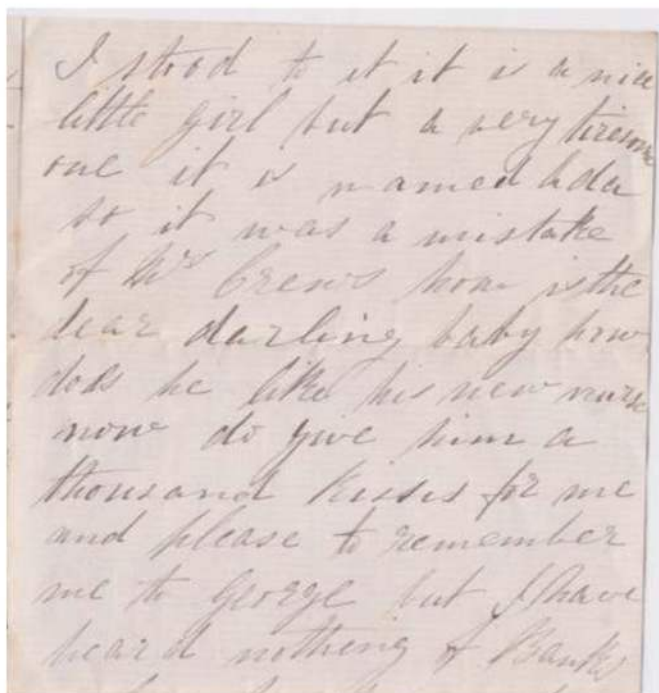 I stood to it it is a nice
little girl but a very tiresome
one it is named Ada
so it was a mistake
of Mrs Crews how is the
dear darling baby how
does he like his new nurse
now do give him a
thousand kisses for me
and please to remember
me to George but I have
heard nothing of Banks